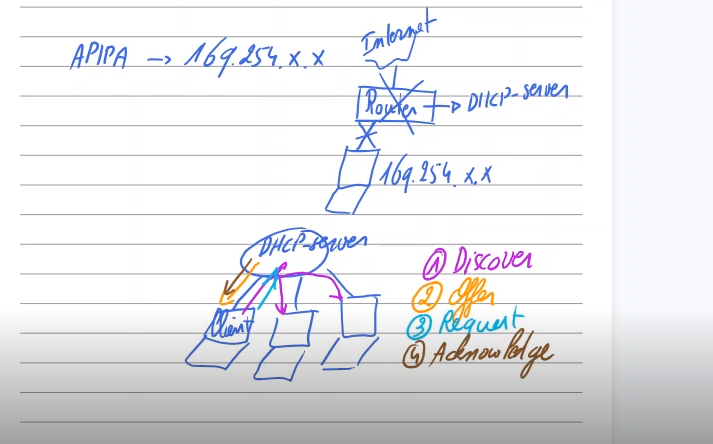 APIPA → 169.254.x.x
Internet
Router → DHCP-server
169.254.x.x
DHCP-server
Client
① Discover
② Offer
③ Request
④ Acknowledge